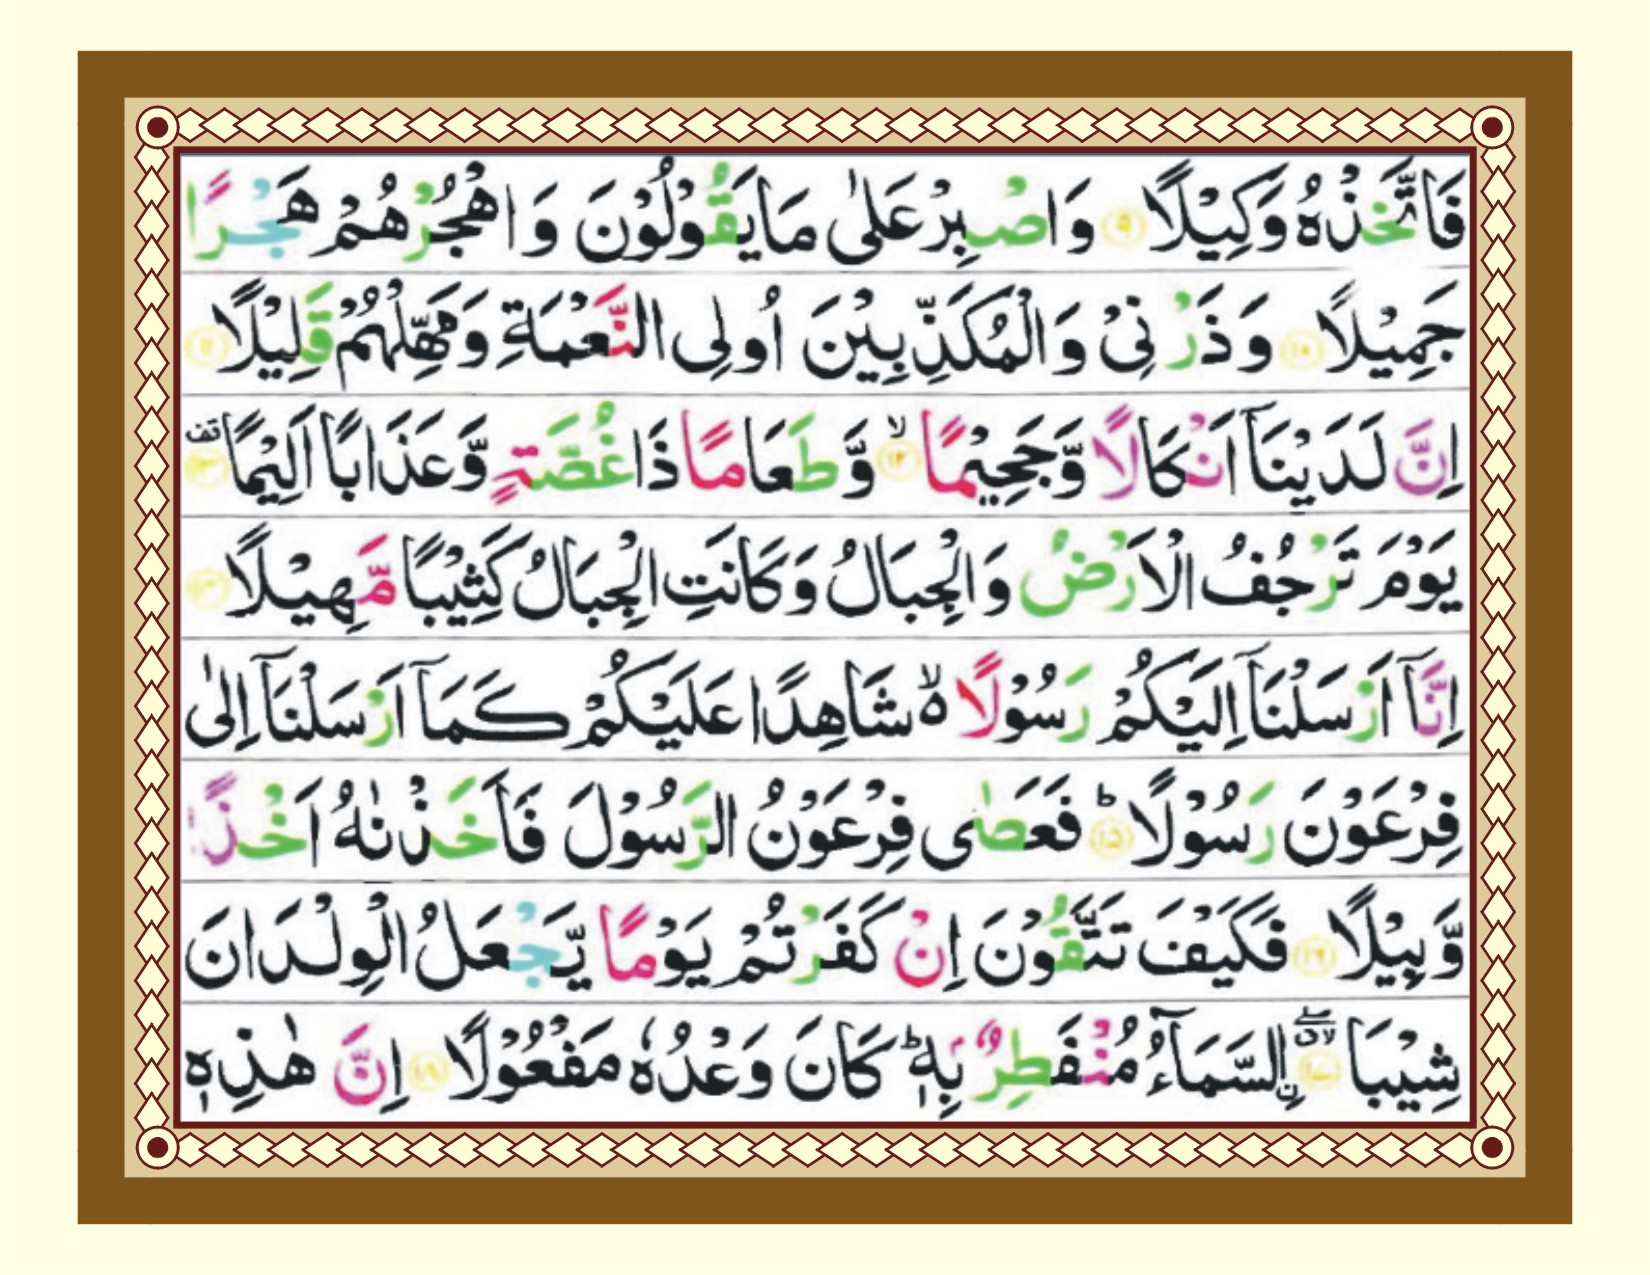 فَاتَّخِذْهُ وَكِيْلًا ﴿۹﴾ وَاصْبِرْ عَلٰى مَا يَقُوْلُوْنَ وَاهْجُرْهُمْ هَجْرًا
جَمِيْلًا ﴿۱۰﴾ وَذَرْنِىْ وَالْمُكَذِّبِيْنَ اُولِى النَّعْمَةِ وَمَهِّلْهُمْ قَلِيْلًا ﴿۱۱﴾
اِنَّ لَدَيْنَاۤ اَنْكَالًا وَّجَحِيْمًا ۙ﴿۱۲﴾ وَّطَعَامًا ذَا غُصَّةٍ وَّعَذَابًا اَلِيْمًا ﴿۱۳﴾ قف
يَوْمَ تَرْجُفُ الْاَرْضُ وَالْجِبَالُ وَكَانَتِ الْجِبَالُ كَثِيْبًا مَّهِيْلًا ﴿۱۴﴾
اِنَّاۤ اَرْسَلْنَاۤ اِلَيْكُمْ رَسُوْلًا ۙ۬ شَاهِدًا عَلَيْكُمْ كَمَاۤ اَرْسَلْنَاۤ اِلٰى
فِرْعَوْنَ رَسُوْلًا ؕ﴿۱۵﴾ فَعَصٰى فِرْعَوْنُ الرَّسُوْلَ فَاَخَذْنٰهُ اَخْذًا
وَّبِيْلًا ﴿۱۶﴾ فَكَيْفَ تَتَّقُوْنَ اِنْ كَفَرْتُمْ يَوْمًا يَّجْعَلُ الْوِلْدَانَ
شِيْبَا ۖۗ﴿۱۷﴾ ۨالسَّمَآءُ مُنْفَطِرٌۢ بِهٖ ؕ كَانَ وَعْدُهٗ مَفْعُوْلًا ﴿۱۸﴾ اِنَّ هٰذِهٖ